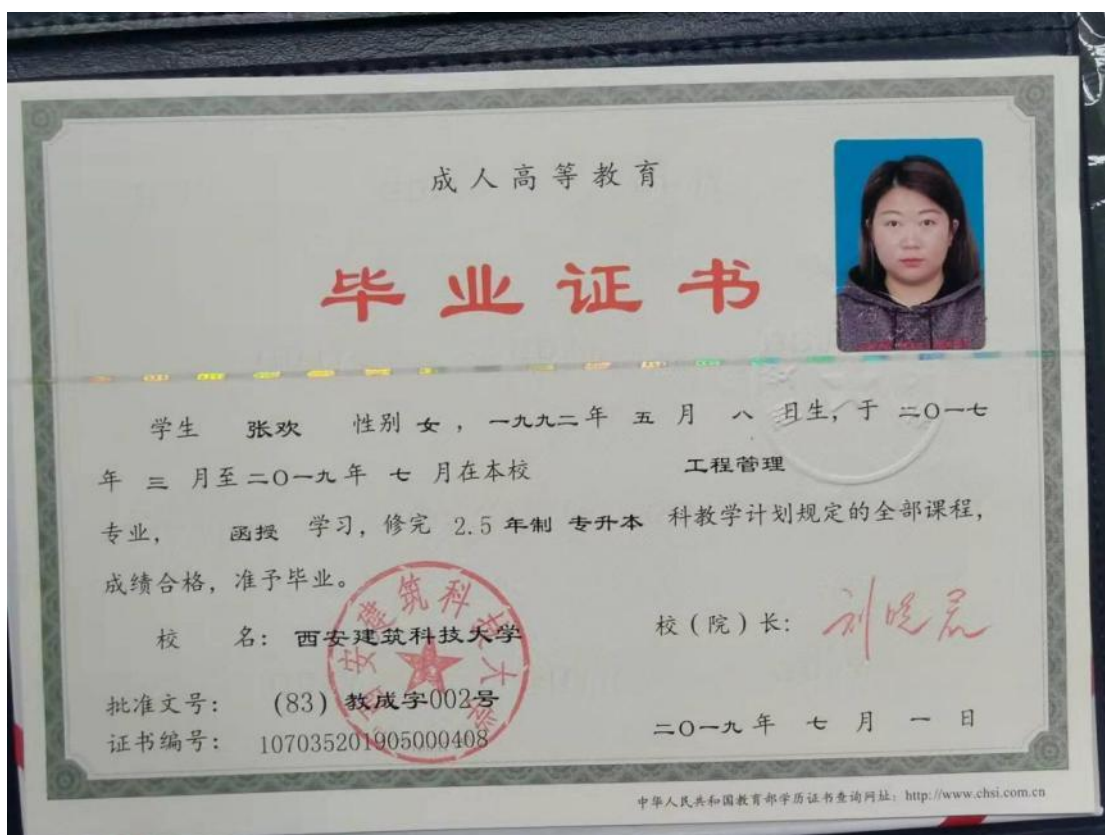 成人高等教育
毕业证书
学生 张欢 性别 女 ，一九九二年 五 月 八 日生，于 二〇一七
年 三 月至 二〇一九 年 七 月在本校 工程管理
专业， 函授 学习，修完 2.5 年制 专升本 科教学计划规定的全部课程，
成绩合格，准予毕业。
校 名：西安建筑科技大学 校（院）长：刘晓君
西安建筑科技大学
批准文号： (83)教成字002号
二〇一九 年 七 月 一 日
证书编号： 107035201905000408
中华人民共和国教育部学历证书查询网址：http://www.chsi.com.cn